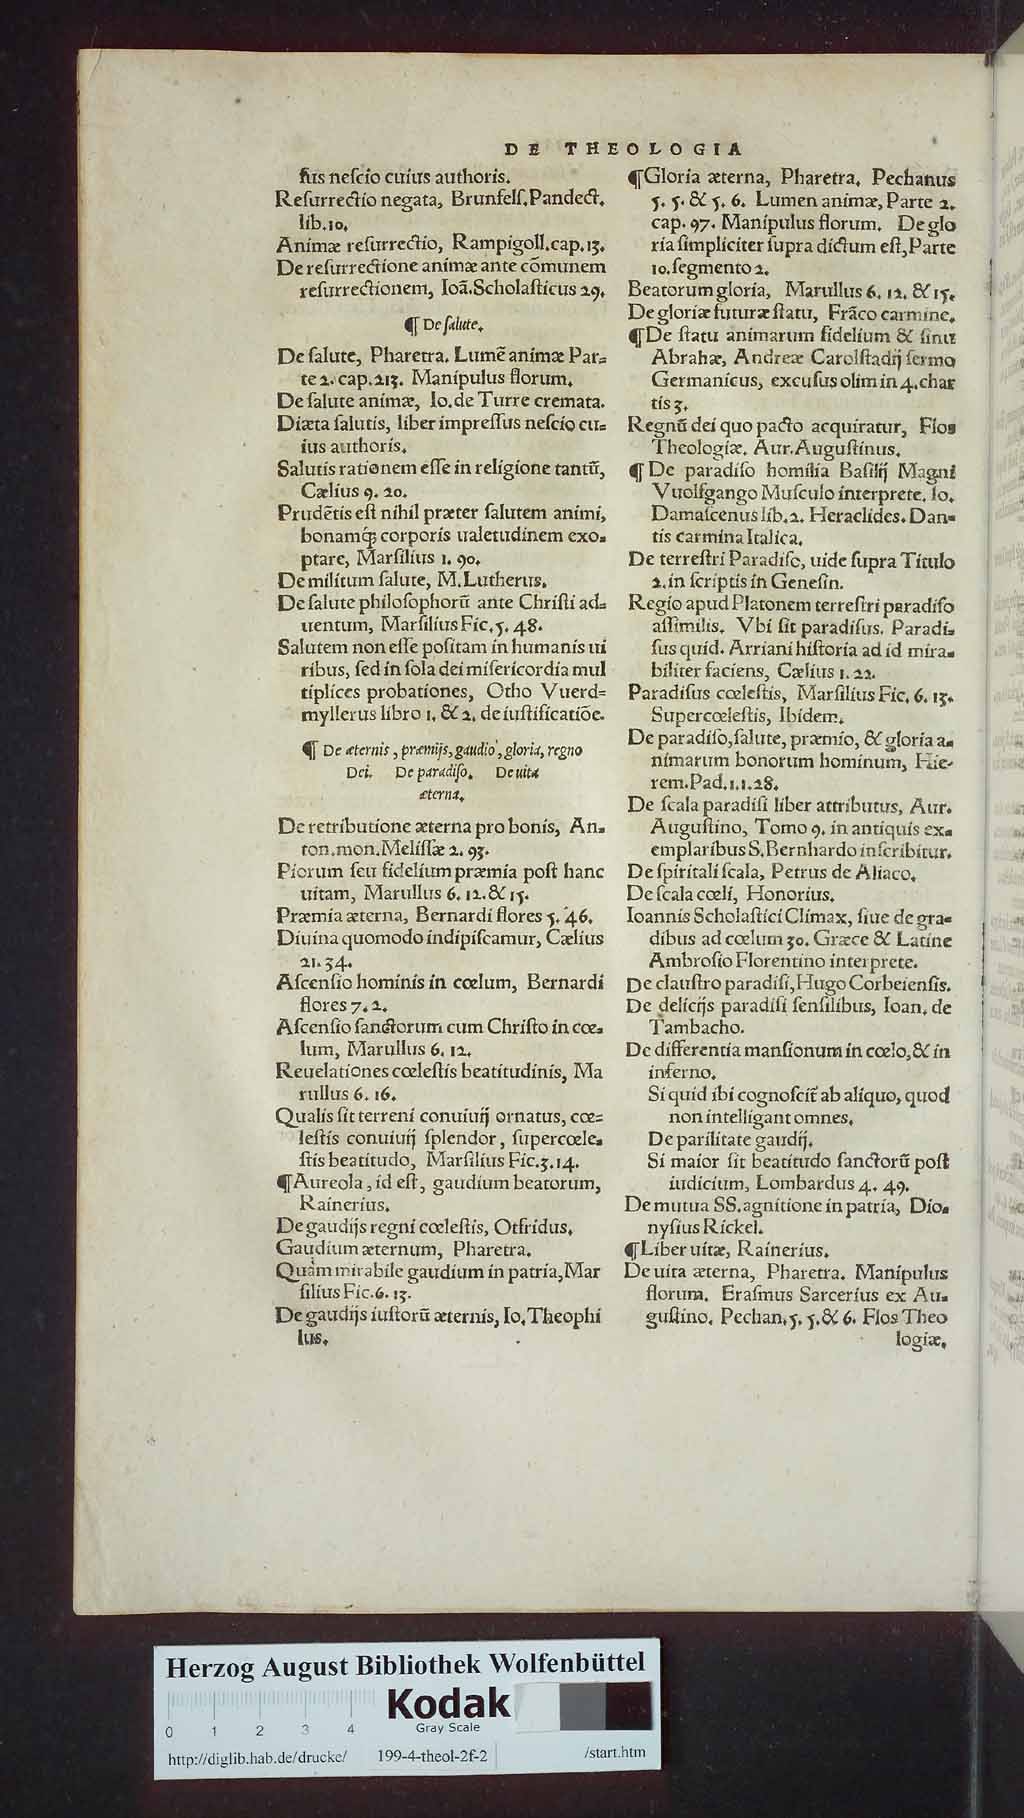 DE THEOLOGIA
ſus neſcio cuius authoris.
Reſurrectio negata, Brunfelſ. Pandect.
lib. 10.
Animæ reſurrectio, Rampigoll. cap. 13.
De reſurrectione animæ ante cõmunem
reſurrectionem, Ioã. Scholaſticus 29.
¶ De ſalute.
De ſalute, Pharetra. Lumẽ animæ Par=
te 2. cap. 213. Manipulus florum.
De ſalute animæ, Io. de Turre cremata.
Diæta ſalutis, liber impreſſus neſcio cu=
ius authoris.
Salutis rationem eſſe in religione tantũ,
Cælius 9. 20.
Prudẽtis eſt nihil præter ſalutem animi,
bonamq́; corporis ualetudinem exo=
ptare, Marſilius 1. 90.
De militum ſalute, M. Lutherus.
De ſalute philoſophorũ ante Chriſti ad=
uentum, Marſilius Fic. 5. 48.
Salutem non eſſe poſitam in humanis ui
ribus, ſed in ſola dei miſericordia mul
tiplices probationes, Otho Vuerd=
myllerus libro 1. & 2. de iuſtificatiõe.
¶ De æternis, præmijs, gaudio, gloria, regno
Dei. De paradiſo. De uita
æterna.
De retributione æterna pro bonis, An=
ton. mon. Meliſſæ 2. 93.
Piorum ſeu fidelium præmia poſt hanc
uitam, Marullus 6. 12. & 15.
Præmia æterna, Bernardi flores 5. 46.
Diuina quomodo indipiſcamur, Cælius
21. 34.
Aſcenſio hominis in cœlum, Bernardi
flores 7. 2.
Aſcenſio ſanctorum cum Chriſto in cœ=
lum, Marullus 6. 12.
Reuelationes cœleſtis beatitudinis, Ma
rullus 6. 16.
Qualis ſit terreni conuiuij ornatus, cœ=
leſtis conuiuij ſplendor, ſupercœle=
ſtis beatitudo, Marſilius Fic. 3. 14.
¶ Aureola, id eſt, gaudium beatorum,
Rainerius.
De gaudijs regni cœleſtis, Otfridus.
Gaudium æternum, Pharetra.
Quàm mirabile gaudium in patria, Mar
ſilius Fic. 6. 13.
De gaudijs iuſtorũ æternis, Io. Theophi
lus.
¶ Gloria æterna, Pharetra. Pechanus
5. 5. & 5. 6. Lumen animæ, Parte 2.
cap. 97. Manipulus florum. De glo
ria ſimpliciter ſupra dictum eſt, Parte
10. ſegmento 2.
Beatorum gloria, Marullus 6. 12. & 15.
De gloriæ futuræ ſtatu, Frãco carmine.
¶ De ſtatu animarum fidelium & ſinu
Abrahæ, Andreæ Carolſtadij ſermo
Germanicus, excuſus olim in 4. char
tis 3.
Regnũ dei quo pacto acquiratur, Flos
Theologiæ. Aur. Auguſtinus.
¶ De paradiſo homilia Baſilij Magni
Vuolfgango Muſculo interprete. Io.
Damaſcenus lib. 2. Heraclides. Dan=
tis carmina Italica.
De terreſtri Paradiſo, uide ſupra Titulo
2. in ſcriptis in Geneſin.
Regio apud Platonem terreſtri paradiſo
aſſimilis. Vbi ſit paradiſus. Paradi=
ſus quid. Arriani hiſtoria ad id mira=
biliter faciens, Cælius 1. 22.
Paradiſus cœleſtis, Marſilius Fic. 6. 13.
Supercœleſtis, Ibidem.
De paradiſo, ſalute, præmio, & gloria a=
nimarum bonorum hominum, Hie=
rem. Pad. 1. 1. 28.
De ſcala paradiſi liber attributus, Aur.
Auguſtino, Tomo 9. in antiquis ex=
emplaribus S. Bernhardo inſcribitur.
De ſpiritali ſcala, Petrus de Aliaco.
De ſcala cœli, Honorius.
Ioannis Scholaſtici Climax, ſiue de gra=
dibus ad cœlum 30. Græce & Latine
Ambroſio Florentino interprete.
De clauſtro paradiſi, Hugo Corbeienſis.
De delicijs paradiſi ſenſilibus, Ioan. de
Tambacho.
De differentia manſionum in cœlo, & in
inferno.
Si quid ibi cognoſcit̃ ab aliquo, quod
non intelligant omnes.
De parilitate gaudij.
Si maior ſit beatitudo ſanctorũ poſt
iudicium, Lombardus 4. 49.
De mutua SS. agnitione in patria, Dio=
nyſius Rickel.
¶ Liber uitæ, Rainerius.
De uita æterna, Pharetra. Manipulus
florum. Eraſmus Sarcerius ex Au=
guſtino. Pechan. 5. 5. & 6. Flos Theo
logiæ.
Herzog August Bibliothek Wolfenbüttel
Kodak
Gray Scale
0 1 2 3 4
http://diglib.hab.de/drucke/ 199-4-theol-2f-2 /start.htm